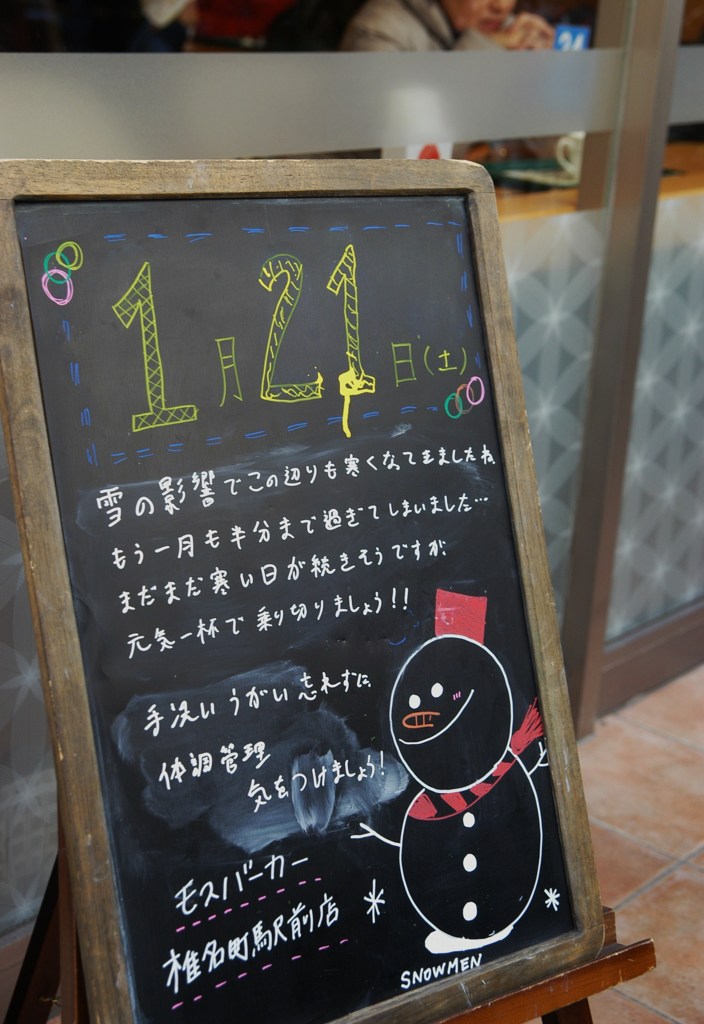 1月21日(土)
雪の影響でこの辺りも寒くなてきましたね
もう一月も半分まで過ぎてしまいました…
まだまだ寒い日が続きそうですが
元気一杯で乗り切りましょう!!
手洗いうがい忘れずに
体調管理
気をつけましょう!
モスバーガー
椎名町駅前店
SNOWMEN
24